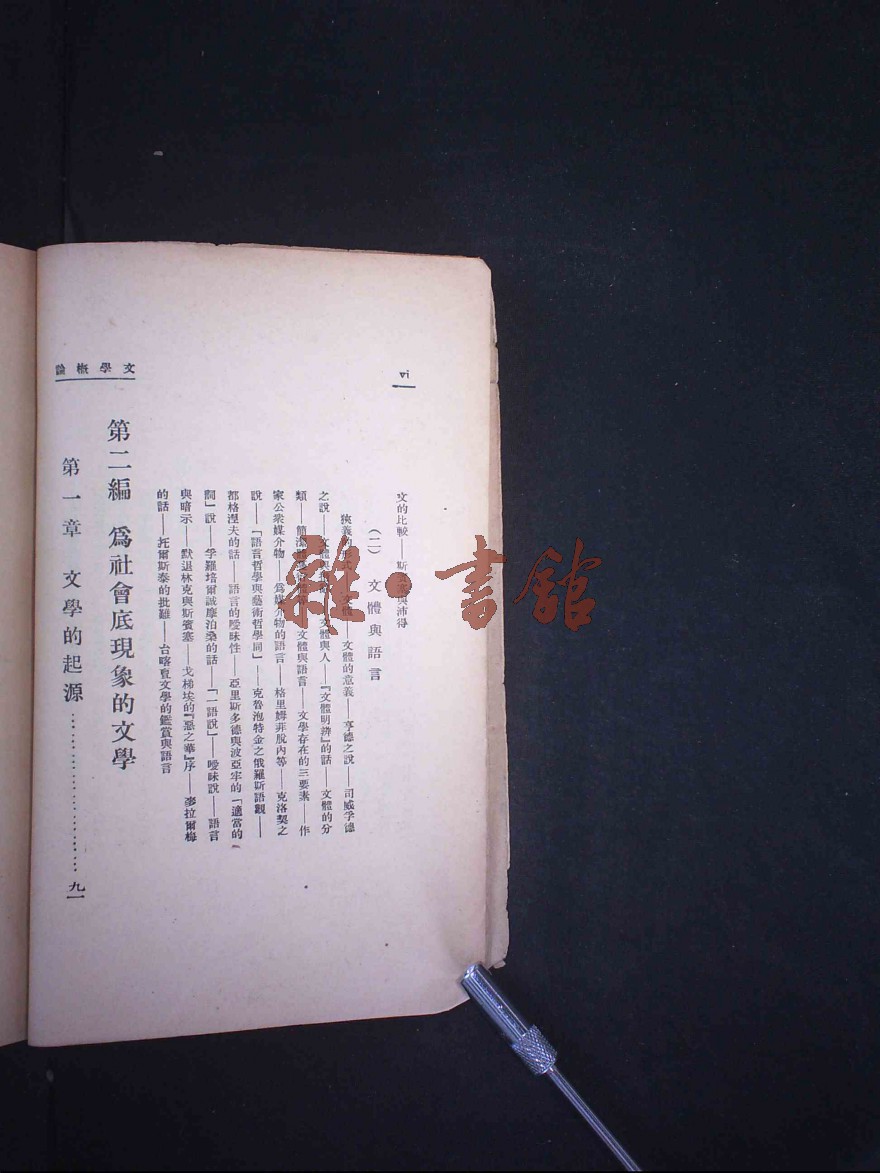 vi
文的比較——斯
與沛得
(二) 文體與語言
狹義的
文體的意義——亨德之說——司威孚德
之說——文體與
文體與人——『文體明辨』的話——文體的分
類——簡潔體
文體與語言——文學存在的三要素——作
家公衆媒介物——爲媒介物的語言——格里姆非脫內等——克洛契之
說——「語言哲學與藝術哲學同」——克魯泡特金之俄羅斯語觀——
都格涅夫的話——語言的曖昧性——亞里斯多德與波亞牢的「適當的
詞」說——孚羅培爾誡摩泊桑的話——「一語說」——曖昧說——語言
與暗示——默退林克與斯賓塞——戈梯埃的『惡之華』序——麥拉爾梅
的話——托爾斯泰的批難——台喀賣文學的鑑賞與語言
文學槪論
第二編 爲社會底現象的文學
第一章 文學的起源……………………九一
雜·書館